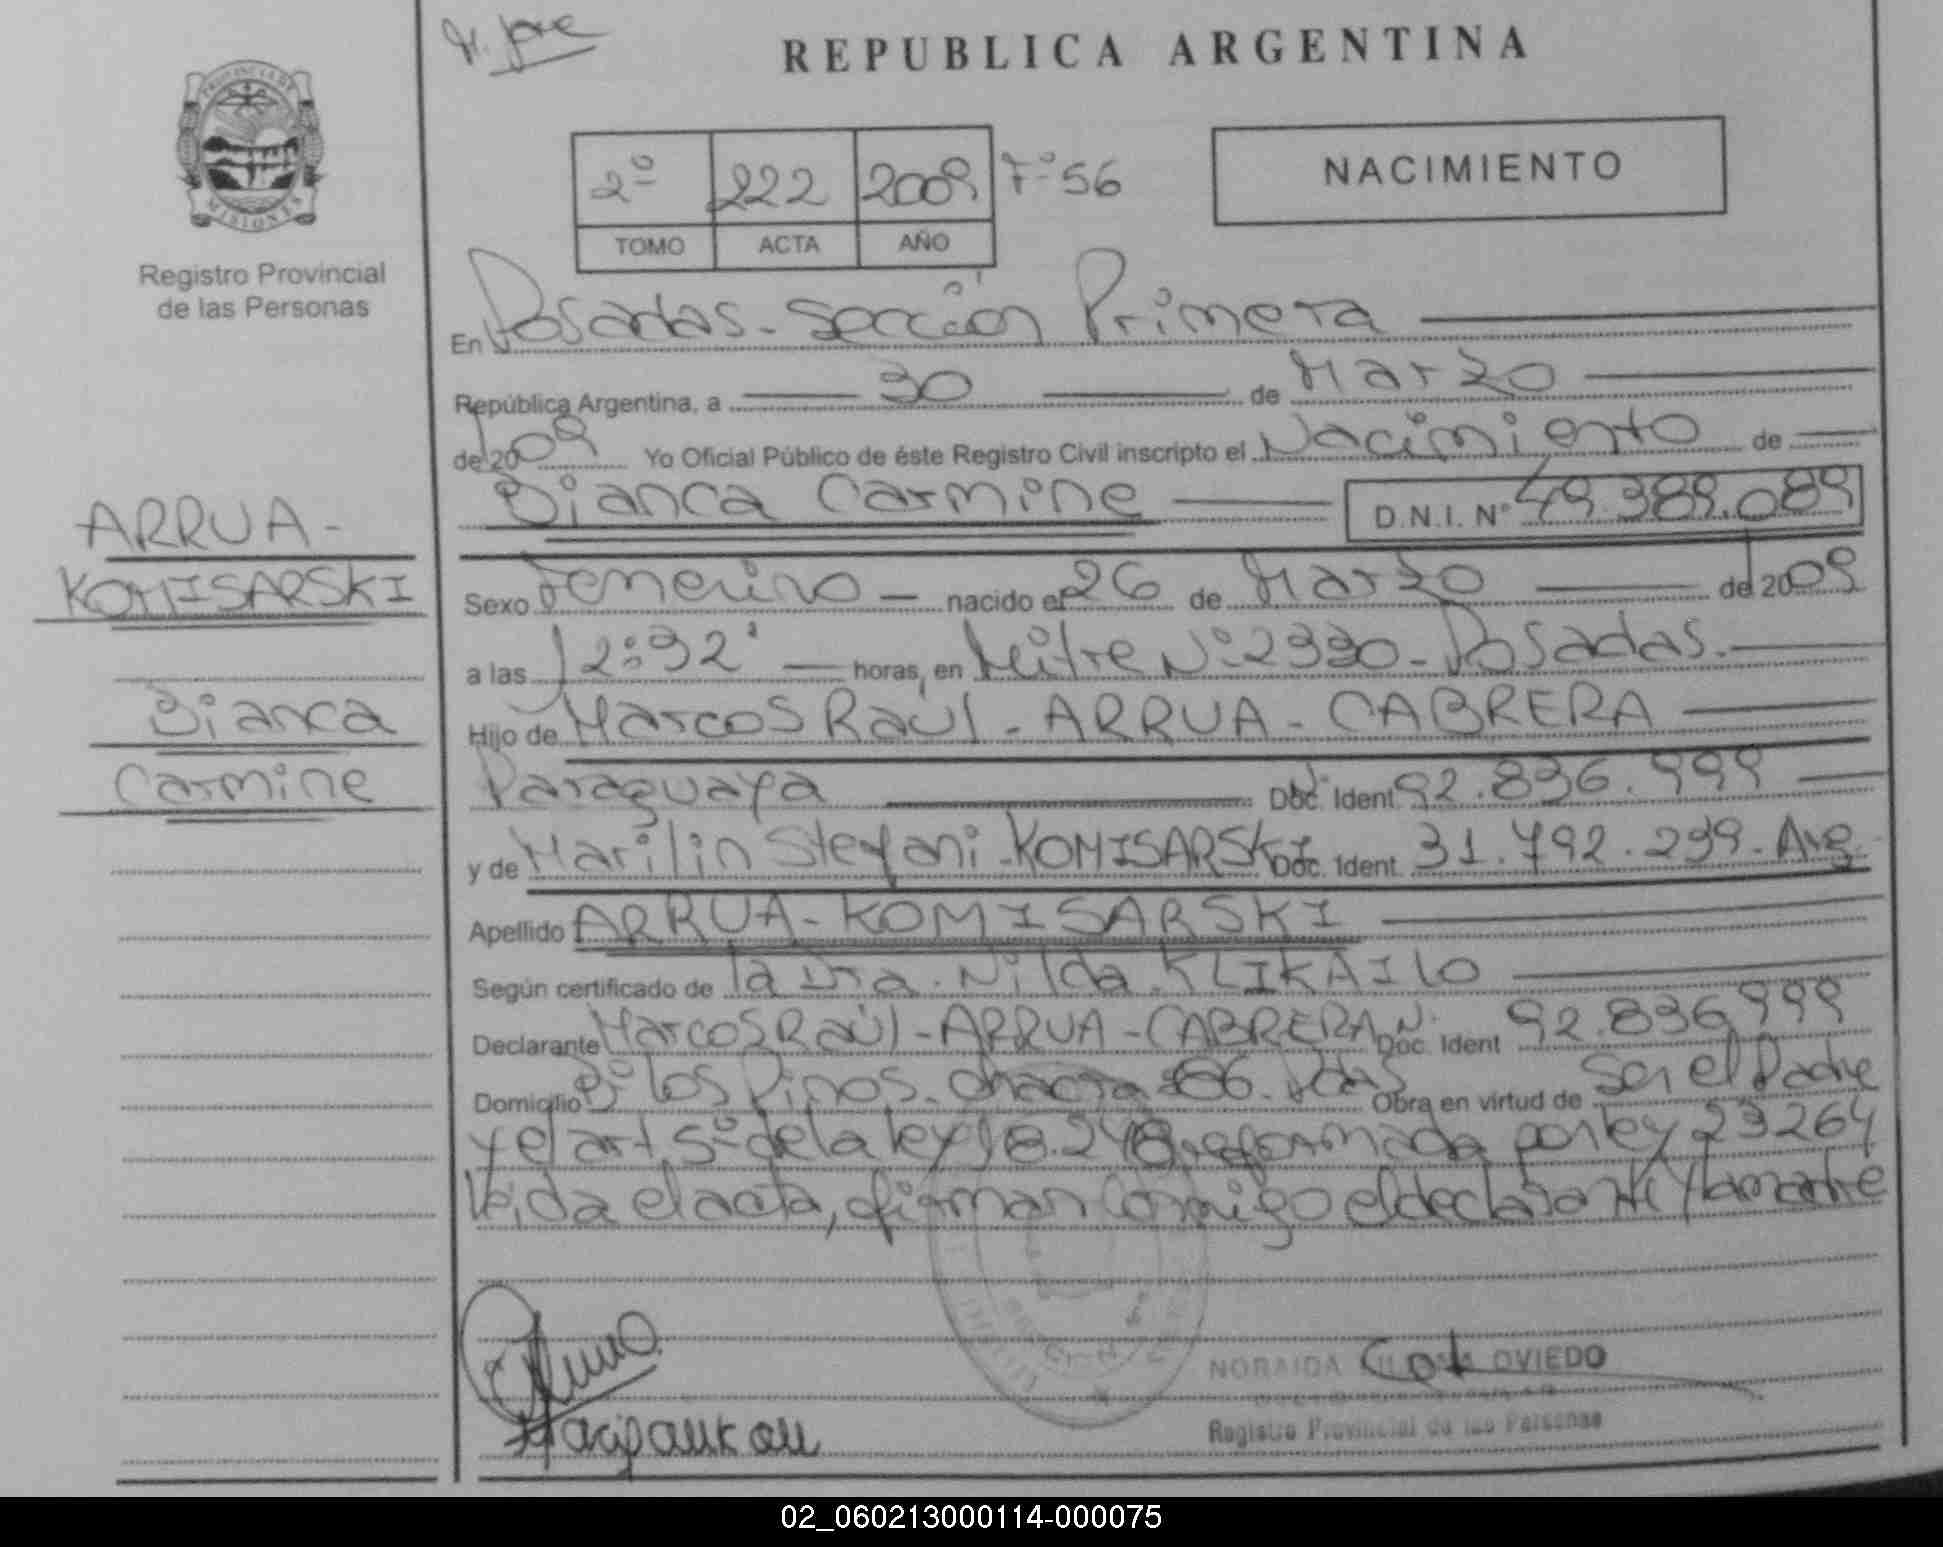 REPUBLICA ARGENTINA
PROVINCIA DE
MISIONES
Registro Provincial
de las Personas
2º 222 2009 Tº 56
TOMO ACTA AÑO
NACIMIENTO
En Posadas - Sección Primera
República Argentina, a 30 de Marzo
de 2009 Yo Oficial Público de éste Registro Civil inscripto el Nacimiento de
Bianca Carmine D.N.I. Nº 49.389.089
ARRUA -
KOMISARSKI
Bianca
Carmine
Sexo Femenino - nacido el 26 de Marzo de 2009
a las 12:32' horas, en Mitre Nº 2330 - Posadas.
Hijo de Marcos Raúl - ARRUA - CABRERA
Paraguaya Doc. Ident 92.836.999
y de Marilin Stefani - KOMISARSKI Doc. Ident. 31.792.239 - Arg.
Apellido ARRUA - KOMISARSKI
Según certificado de la Dra. Nilda KLIKAILO
Declarante Marcos Raúl - ARRUA - CABRERA Nº Doc. Ident 92.836.999
Domicilio Bº los Pinos - chacra 86. Pdas Obra en virtud de Ser el Padre
y el art. 5º de la ley 18.248 reformada por ley 23264
leida el acta, firman conmigo el declarante y la madre
NORAIDA OVIEDO
Registro Provincial de las Personas
02_060213000114-000075